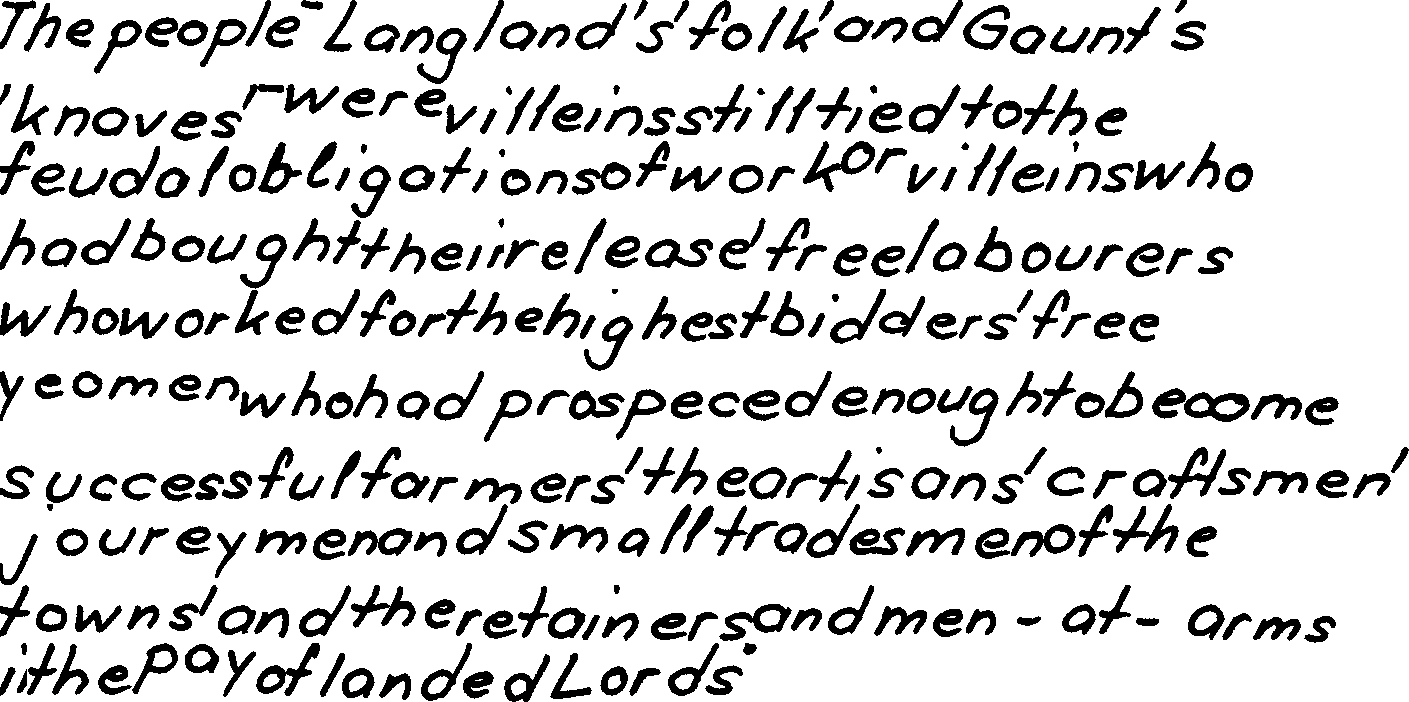 The people - Langland's' folk' and Gaunt's
'knaves' - were villeins still tied to the
feudal obligations of work or villeins who
had bought their release' free labourers
who worked for the highest bidders' free
yeomen who had prospeced enough to become
successful farmers' the artisans' craftsmen'
joureymen and small tradesmen of the
towns' and the retainers and men - at - arms
i the pay of landed Lords.